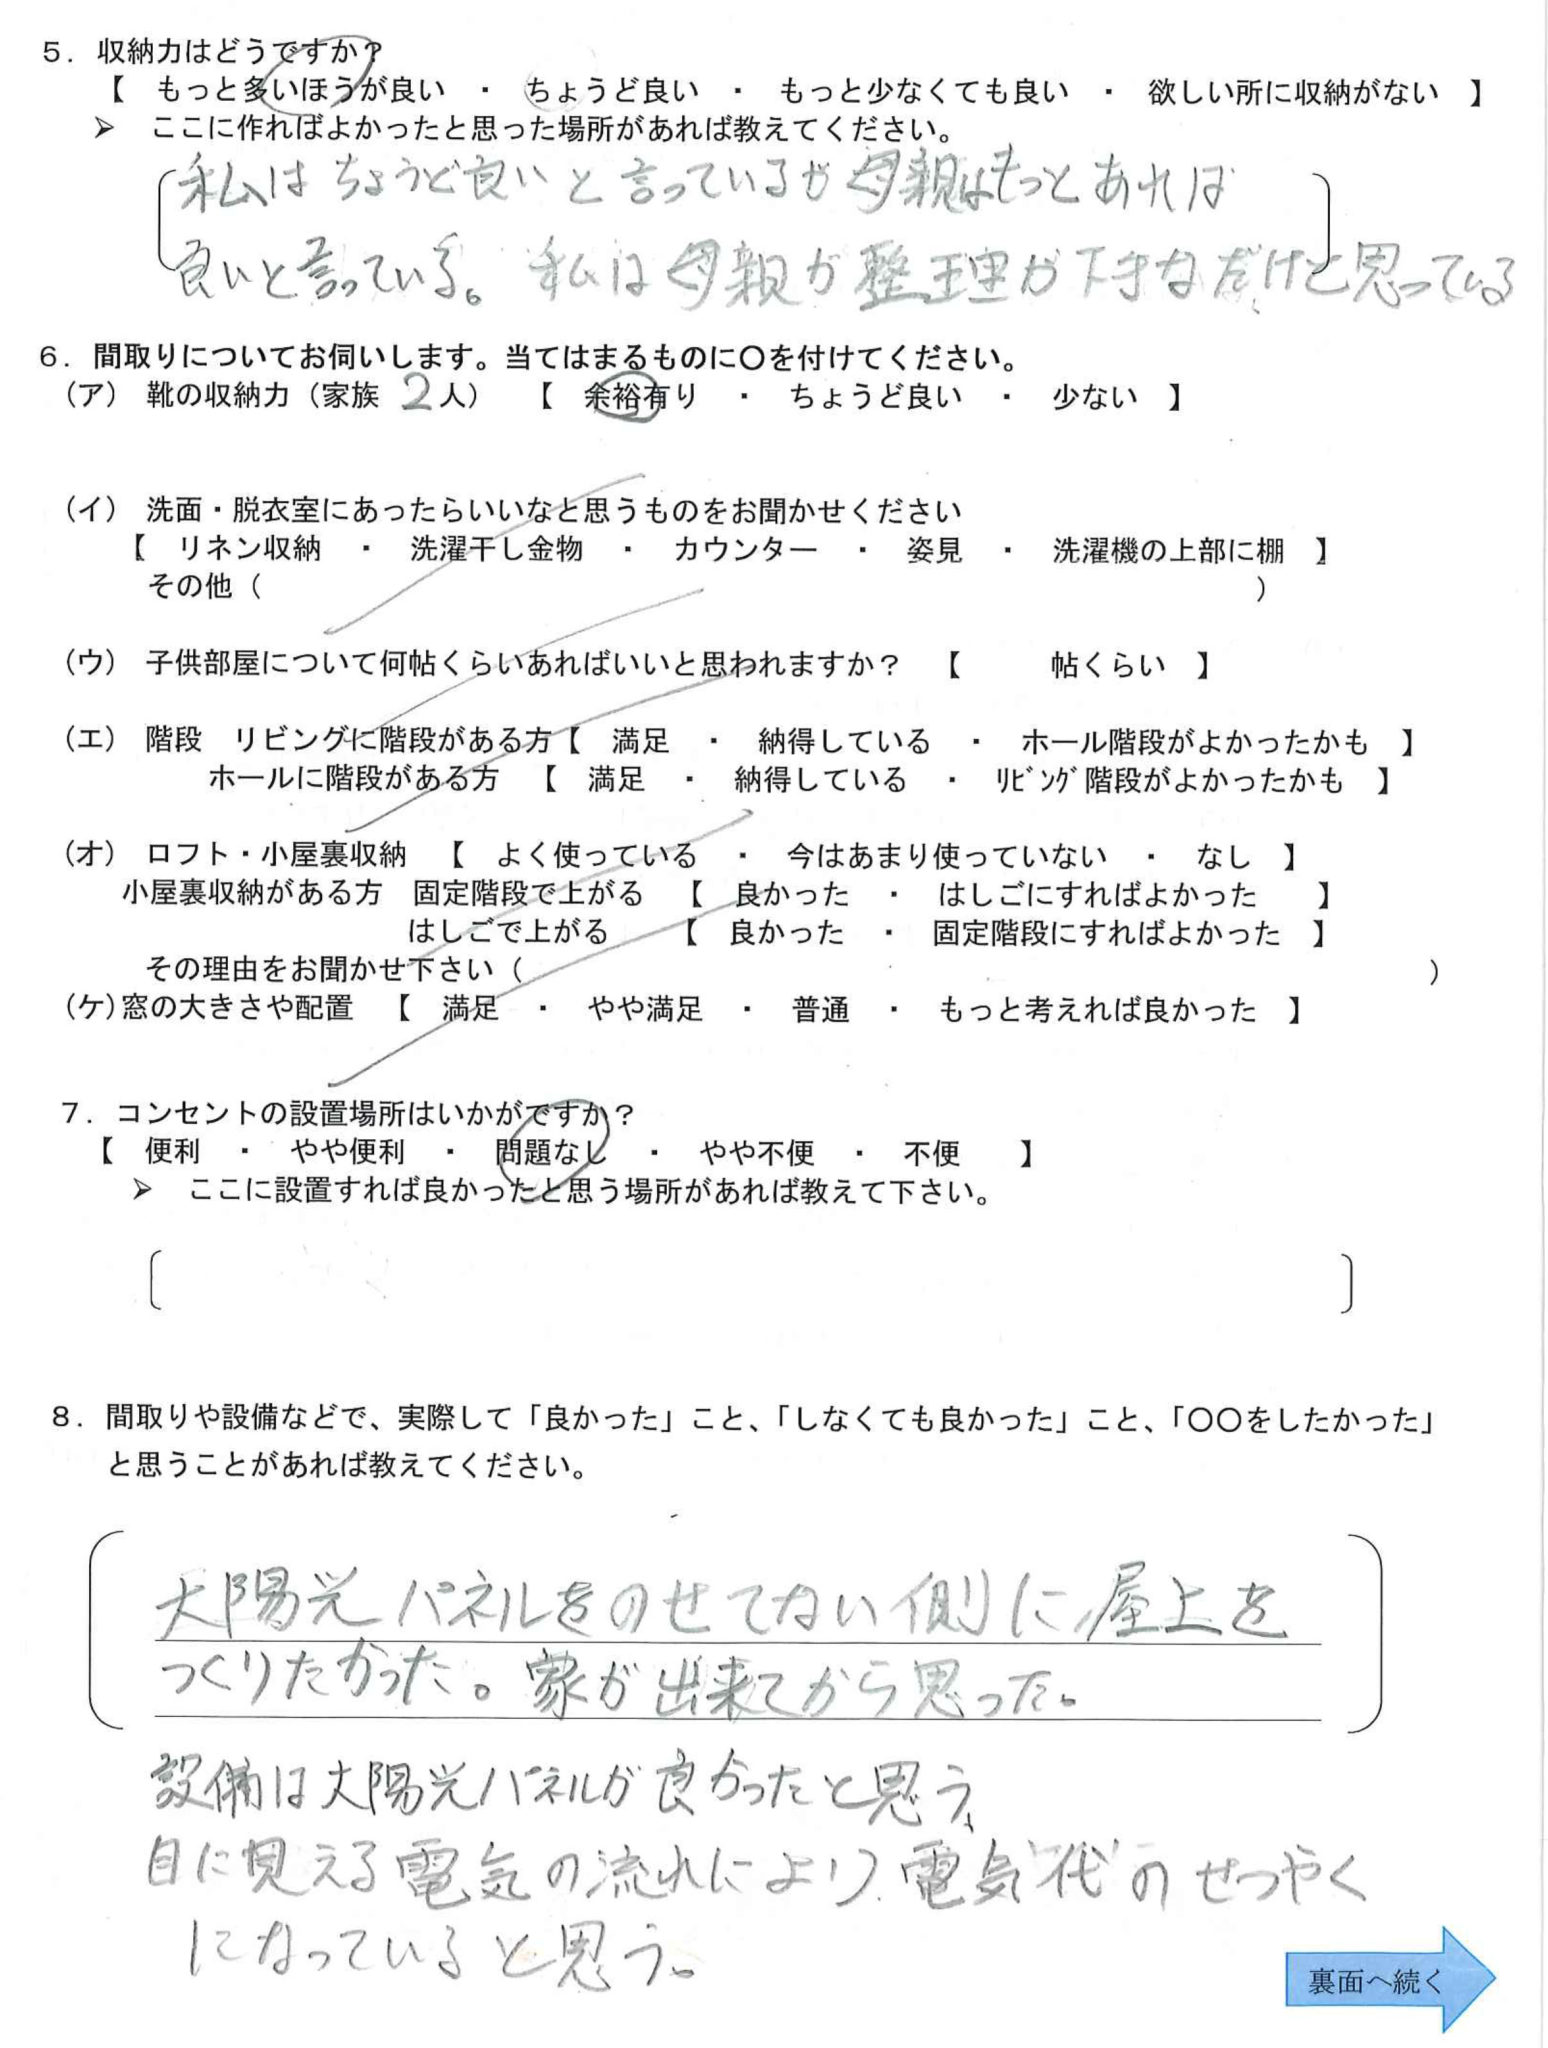 ５．収納力はどうですか？
【　もっと多いほうが良い　・　ちょうど良い　・　もっと少なくても良い　・　欲しい所に収納がない　】
➢　ここに作ればよかったと思った場所があれば教えてください。
私はちょうど良いと言っているが母親はもっとあれば
良いと言っている。私は母親が整理が下手なだけと思っている
６．間取りについてお伺いします。当てはまるものに〇を付けてください。
（ア）　靴の収納力（家族　2人）　【　余裕有り　・　ちょうど良い　・　少ない　】
（イ）　洗面・脱衣室にあったらいいなと思うものをお聞かせください
【　リネン収納　・　洗濯干し金物　・　カウンター　・　姿見　・　洗濯機の上部に棚　】
その他（　　　　　　　　　　）
（ウ）　子供部屋について何帖くらいあればいいと思われますか？　【　　　帖くらい　】
（エ）　階段　リビングに階段がある方【　満足　・　納得している　・　ホール階段がよかったかも　】
ホールに階段がある方　【　満足　・　納得している　・　ﾘﾋﾞﾝｸﾞ階段がよかったかも　】
（オ）　ロフト・小屋裏収納　【　よく使っている　・　今はあまり使っていない　・　なし　】
小屋裏収納がある方　固定階段で上がる　【　良かった　・　はしごにすればよかった　　】
はしごで上がる　　【　良かった　・　固定階段にすればよかった　】
その理由をお聞かせ下さい（　　　　　　　　　　）
（ケ）窓の大きさや配置　【　満足　・　やや満足　・　普通　・　もっと考えれば良かった　】
７．コンセントの設置場所はいかがですか？
【　便利　・　やや便利　・　問題なし　・　やや不便　・　不便　　】
➢　ここに設置すれば良かったと思う場所があれば教えて下さい。
８．間取りや設備などで、実際して「良かった」こと、「しなくても良かった」こと、「〇〇をしたかった」
と思うことがあれば教えてください。
大陽光パネルをのせてない側に屋上を
つくりたかった。家が出来てから思った。
設備は大陽光パネルが良かったと思う、
目に見える電気の流れにより電気代のせつやく
になっていると思う。
裏面へ続く